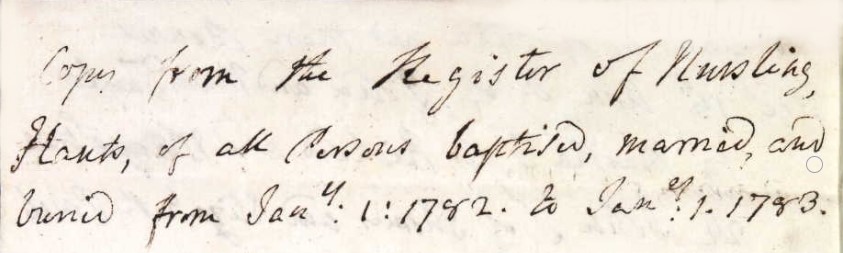 Copy from the Register of Nursling,
Hants, of all Persons baptised, married, and
buried from Janʸ: 1: 1782. to Janʸ: 1. 1783.